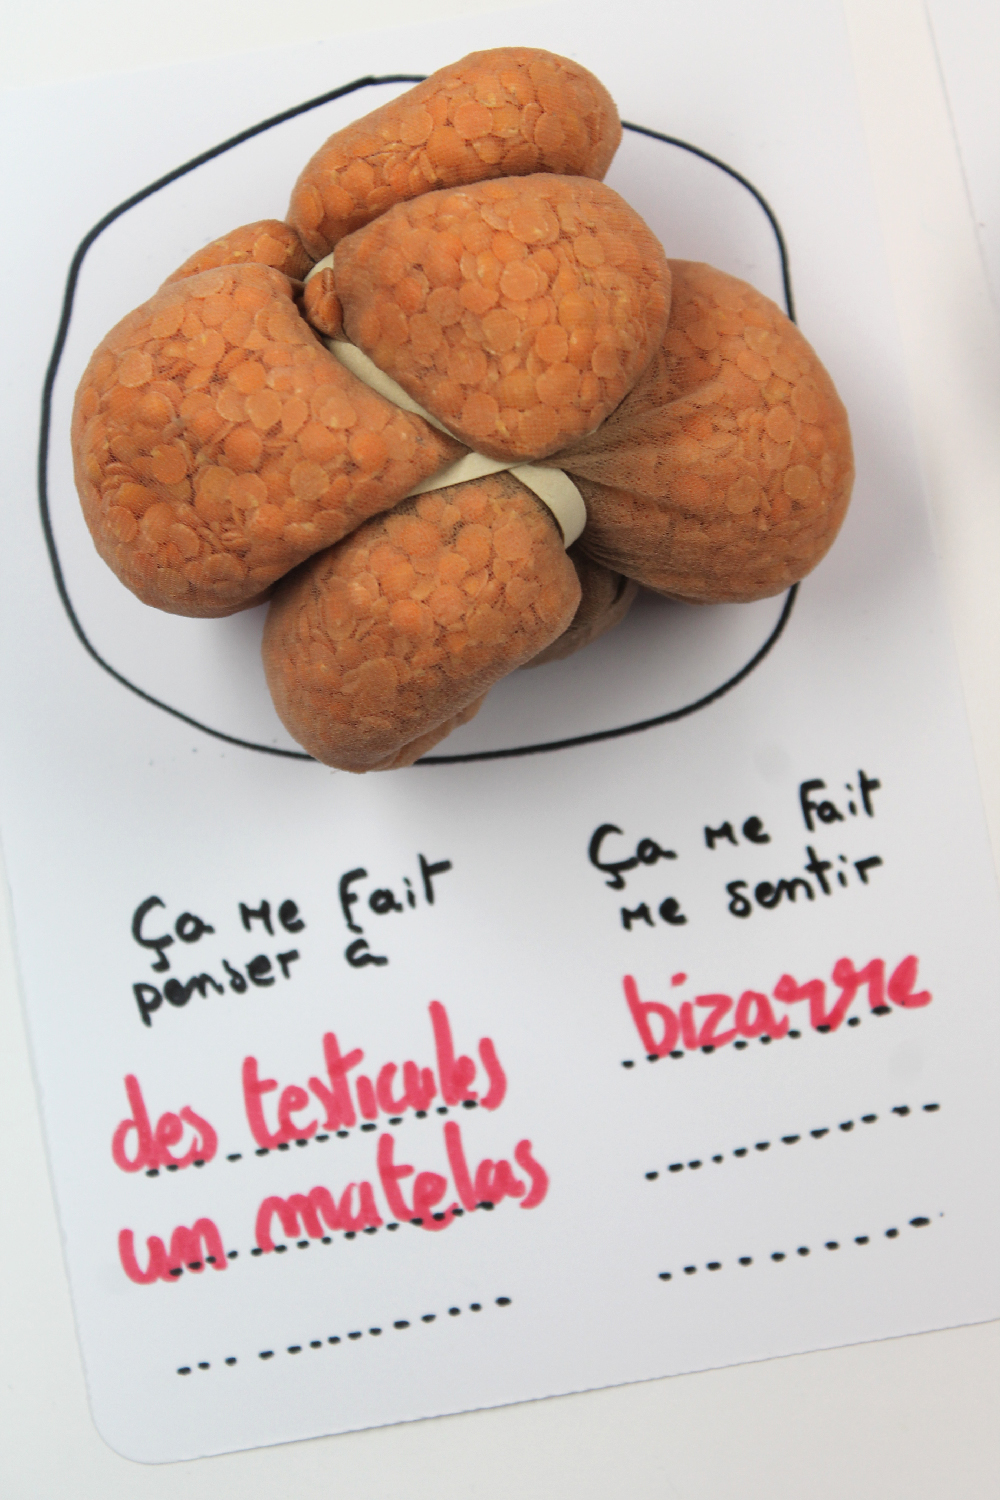 Ça me fait
penser à
des testicules
un matelas
Ça me fait
me sentir
bizarre